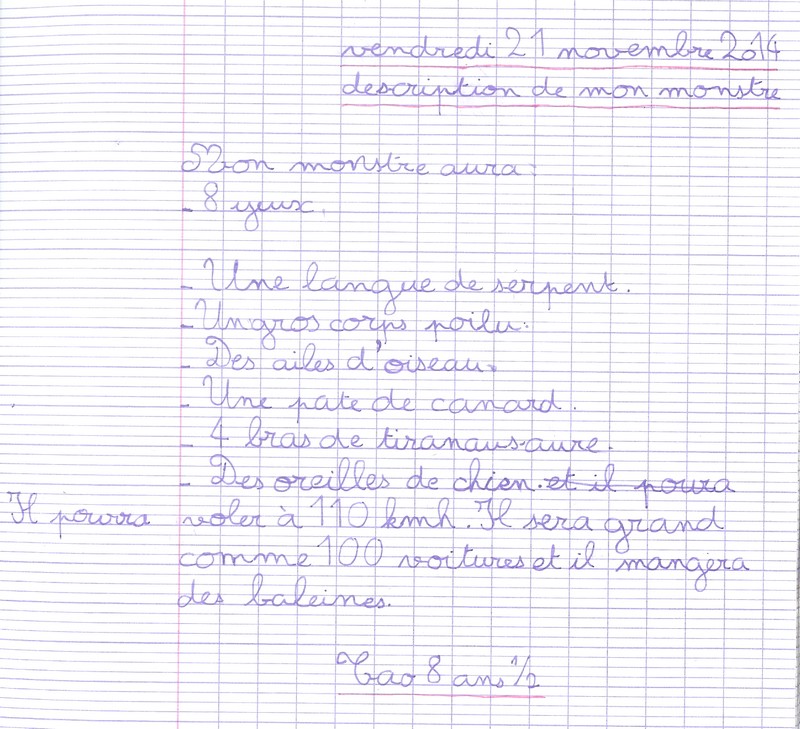 vendredi 21 novembre 2014
description de mon monstre
Mon monstre aura :
- 8 yeux.
- Une langue de serpent.
- Un gros corps poilu.
- Des ailes d'oiseau.
- Une pate de canard.
- 4 bras de tiranausaure.
- Des oreilles de chien. et il poura
Il pourra voler à 110 kmh. Il sera grand
comme 100 voitures et il mangera
des baleines.
Tao 8 ans 1/2